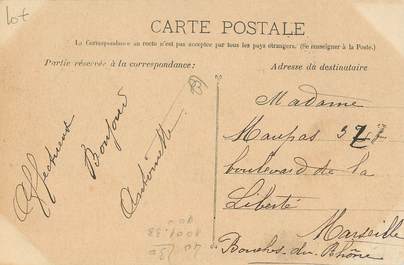 Lot
CARTE POSTALE
La Correspondance au recto n'est pas acceptée par tous les pays étrangers. (Se renseigner à la Poste.)
Partie réservée à la correspondance:
Adresse du destinataire
Affectueux
Bonjour
Antoinette
Madame
Maupas 327
boulevard de la
Liberté
Marseille
Bouches-du-Rhône